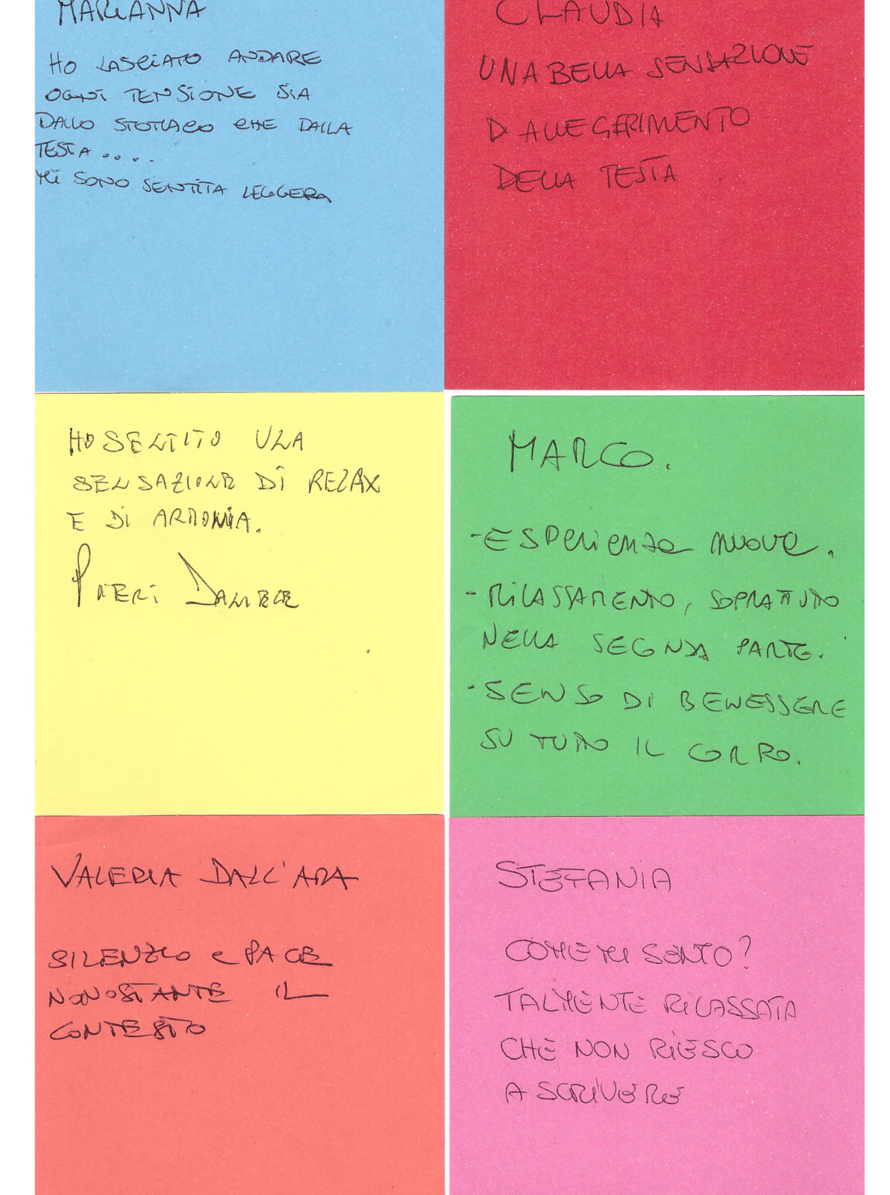 MARIANNA
HO LASCIATO ANDARE
OGNI TENSIONE SIA
DALLO STOMACO CHE DALLA
TESTA....
MI SONO SENTITA LEGGERA
CLAUDIA
UNA BELLA SENSAZIONE
D ALLEGERIMENTO
DELLA TESTA
HO SENTITO UNA
SENSAZIONE DI RELAX
E DI ARMONIA.
PIERI DANIELE
MARCO.
-ESPERIENZA NUOVA.
- RILASSAMENTO, SOPRATTUTTO
NELLA SECONDA PARTE.
- SENSO DI BENESSERE
SU TUTTO IL CORPO.
VALERIA DALL'ARA
SILENZIO e PACE
NONOSTANTE IL
CONTESTO
STEFANIA
COME MI SENTO?
TALMENTE RILASSATA
CHE NON RIESCO
A SCRIVERE